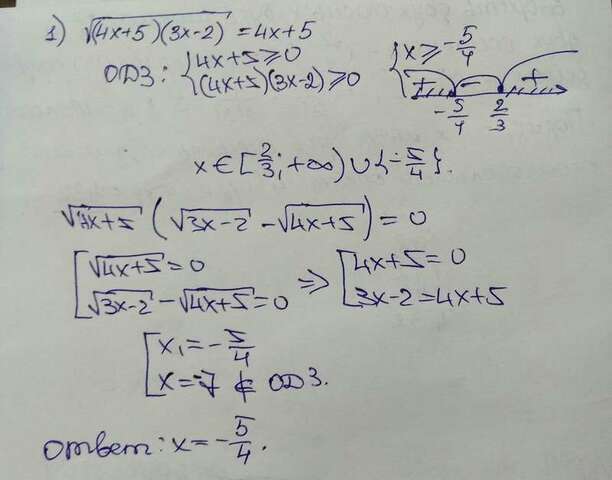 1) √(4x+5)(3x-2) = 4x+5
ОДЗ: { 4x+5 ≥ 0
(4x+5)(3x-2) ≥ 0
{ x ≥ -5/4
+ - +
-5/4 2/3
x ∈ [2/3; +∞) ∪ {-5/4}.
√4x+5 (√3x-2 - √4x+5) = 0
[ √4x+5 = 0
√3x-2 - √4x+5 = 0
⇒ [ 4x+5 = 0
3x-2 = 4x+5
[ x₁ = -5/4
x = -7 ∉ ОДЗ.
Ответ: x = -5/4.